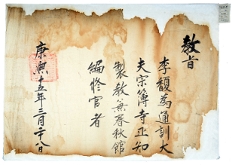 敎旨
李馥為通訓大
夫宗簿寺正知
製敎兼春秋館
編修官者
康熙 五年 月二十八日